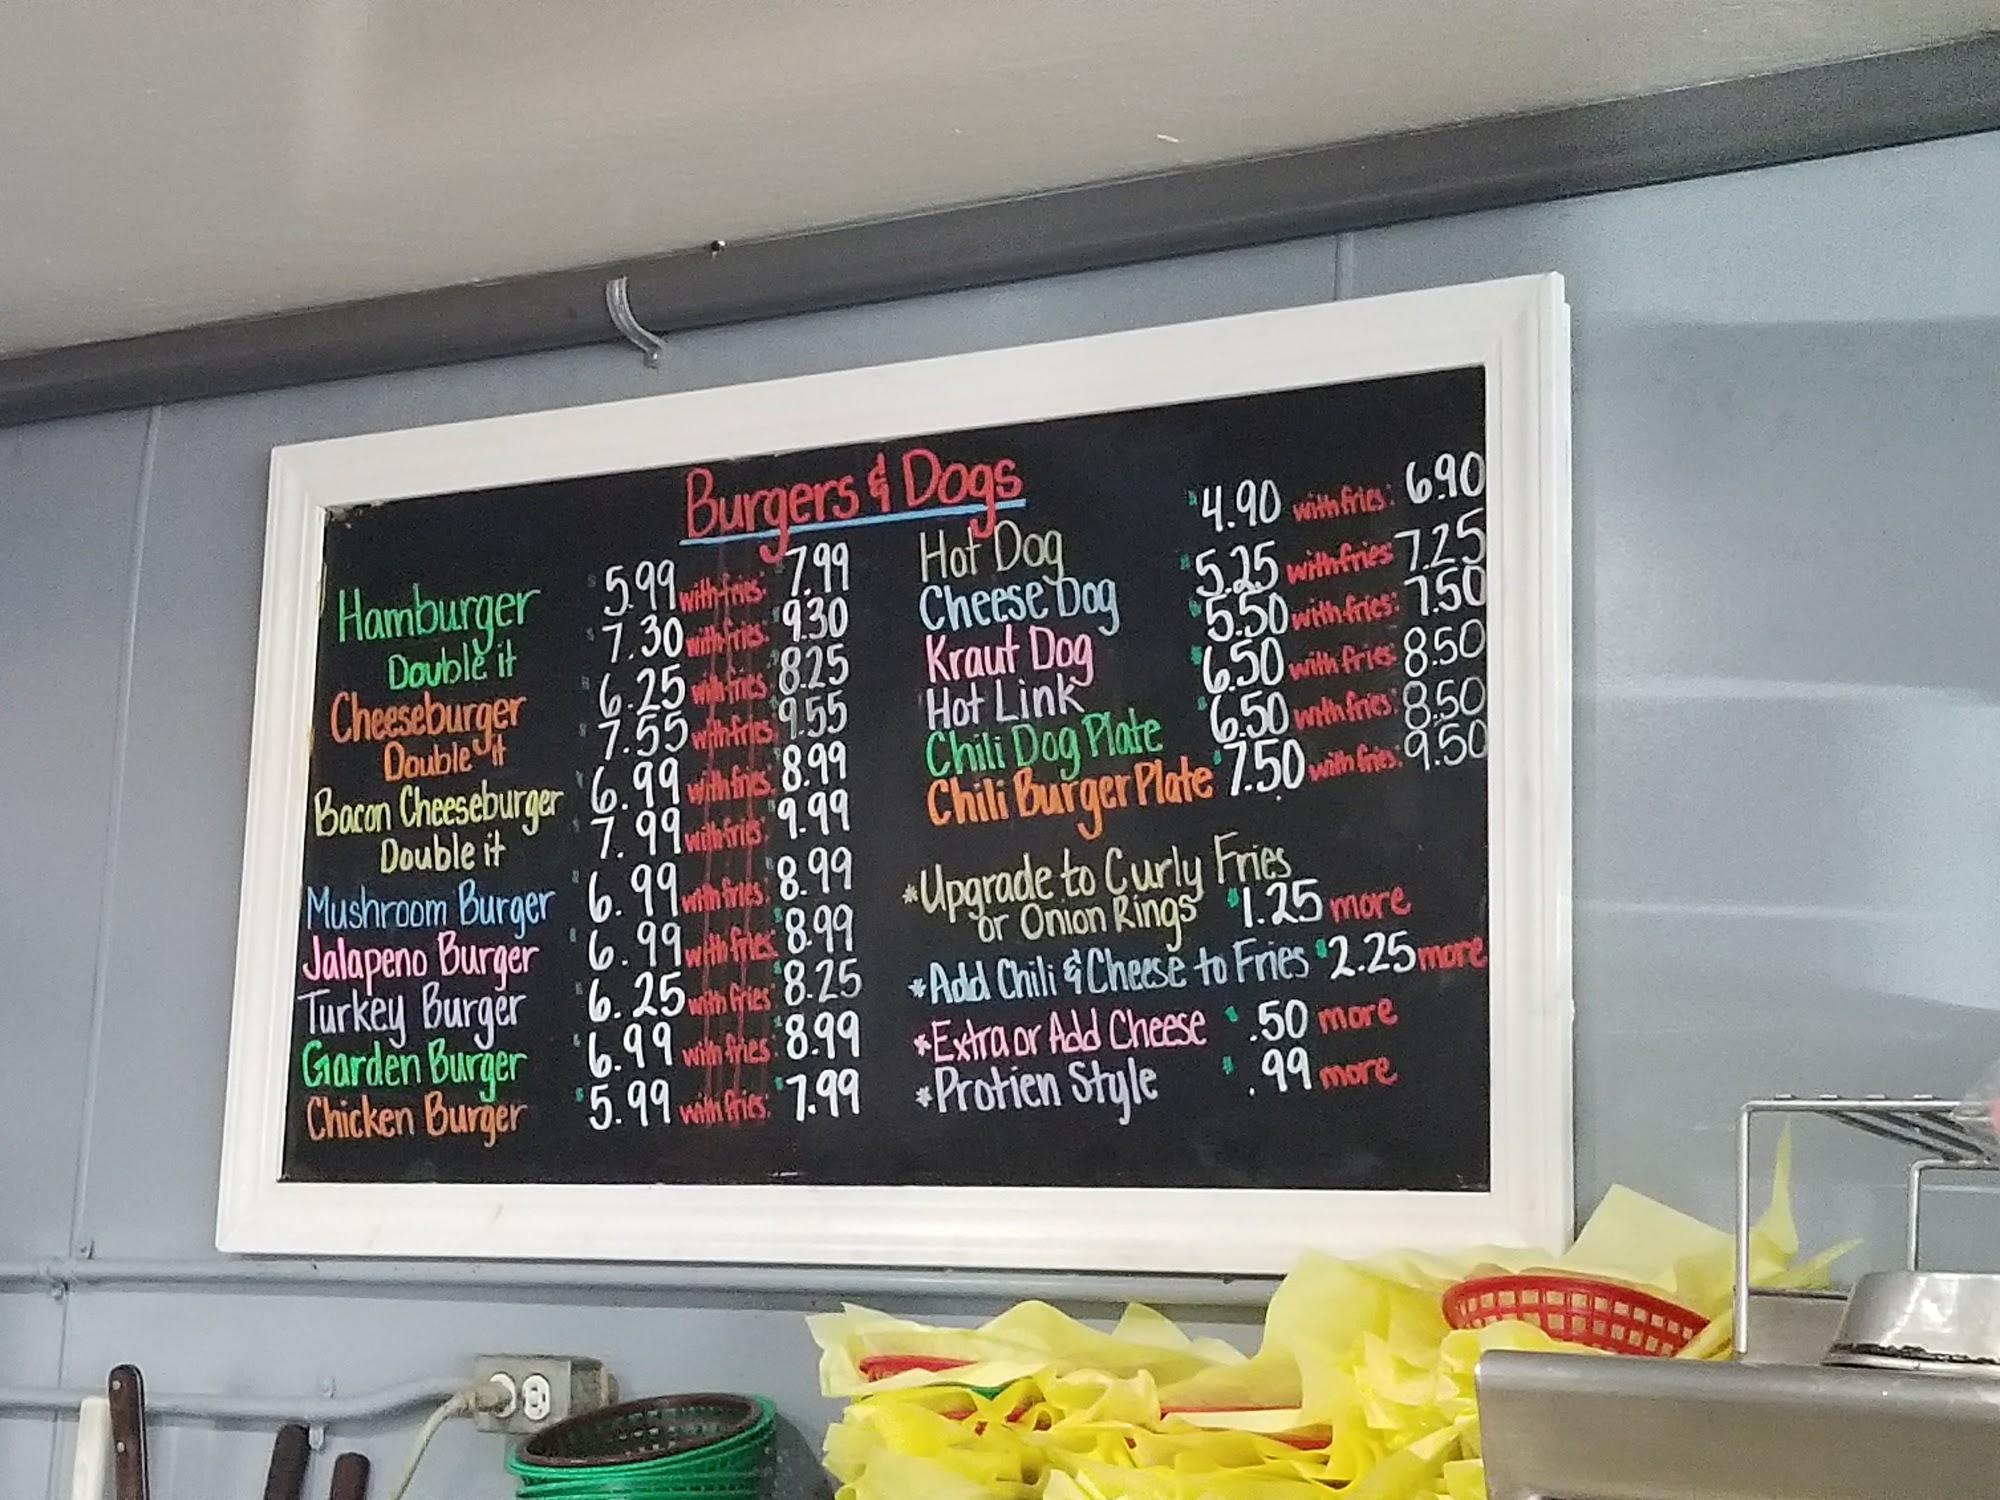 Burgers & Dogs
Hamburger $5.99 with fries: 7.99
Double it $7.30 with fries: 9.30
Cheeseburger $6.25 with fries: 8.25
Double it $7.55 with fries: 9.55
Bacon Cheeseburger $6.99 with fries: 8.99
Double it $7.99 with fries: 9.99
Mushroom Burger $6.99 with fries: $8.99
Jalapeno Burger $6.99 with fries: $8.99
Turkey Burger $6.25 with fries: $8.25
Garden Burger $6.99 with fries: $8.99
Chicken Burger $5.99 with fries: $7.99
Hot Dog $4.90 with fries: 6.90
Cheese Dog $5.25 with fries: 7.25
Kraut Dog $5.50 with fries: 7.50
Hot Link $6.50 with fries: 8.50
Chili Dog Plate $6.50 with fries: 8.50
Chili Burger Plate $7.50 with fries: 9.50
*Upgrade to Curly Fries
or Onion Rings $1.25 more
*Add Chili & Cheese to Fries $2.25 more
*Extra or Add Cheese $.50 more
*Protien Style $.99 more